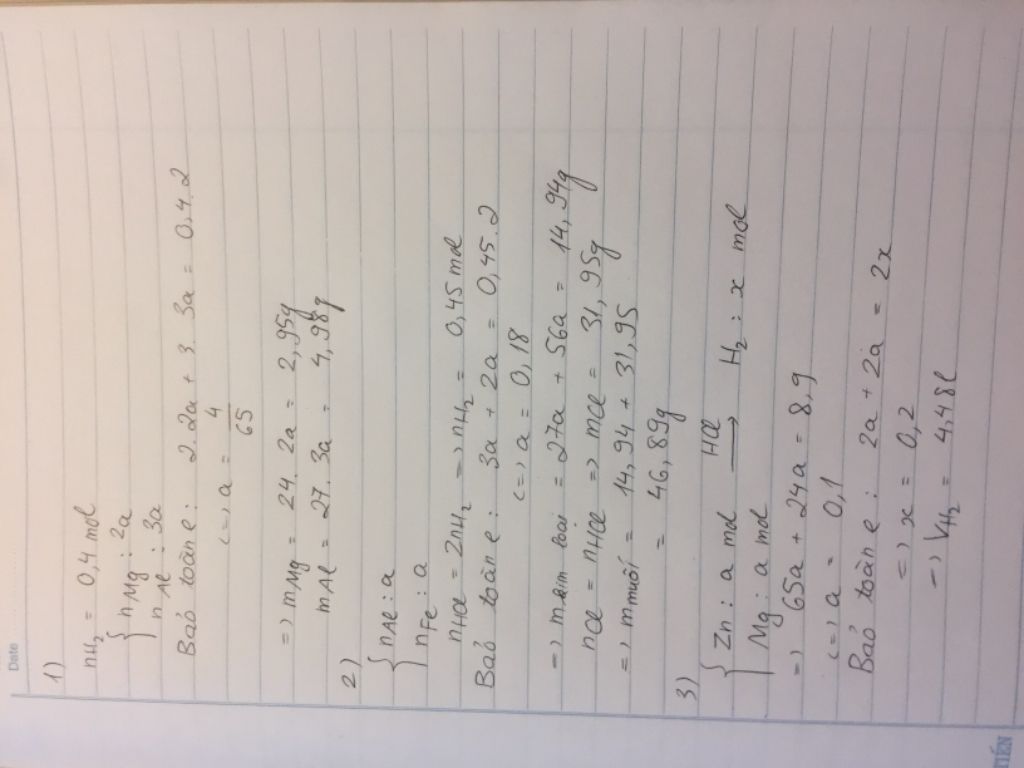 Date
1)
nH₂ = 0,4 mol
{ nMg : 2a
nAl : 3a
Baỏ toàn e : 2. 2a + 3. 3a = 0,4.2
<=> a = 4/65
=> mMg = 24. 2a = 2,95g
mAl = 27. 3a = 4,98g
2)
{ nAl : a
nFe : a
nHCl = 2nH₂ => nH₂ = 0,45 mol
Baỏ toàn e : 3a + 2a = 0,45.2
<=> a = 0,18
=> mkim loại = 27a + 56a = 14,94g
nCl = nHCl => mCl = 31,95g
=> mmuối = 14,94 + 31,95
= 46,89g
3)
{ Zn : a mol →HCl H₂ : x mol
Mg : a mol
=> 65a + 24a = 8,9
<=> a = 0,1
Baỏ toàn e : 2a + 2a = 2x
<=> x = 0,2
=> VH₂ = 4,48l
TIẾN